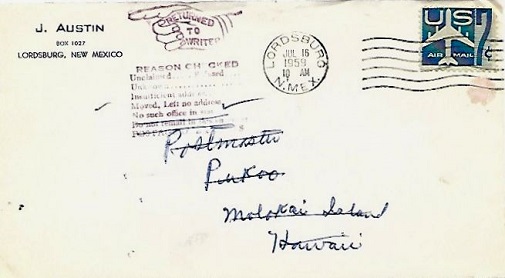 J. AUSTIN
BOX 1027
LORDSBURG, NEW MEXICO
RETURNED
TO
WRITER
REASON CHECKED
Unclaimed
Unknown
Insufficient address
Moved, Left no address
No such office in
Do not remail in this
LORDSBURG
JUL 16
10 AM
1959
N. MEX.
US
7c
AIR MAIL
Postmaster
Pukoo
Molokai Island
Hawaii